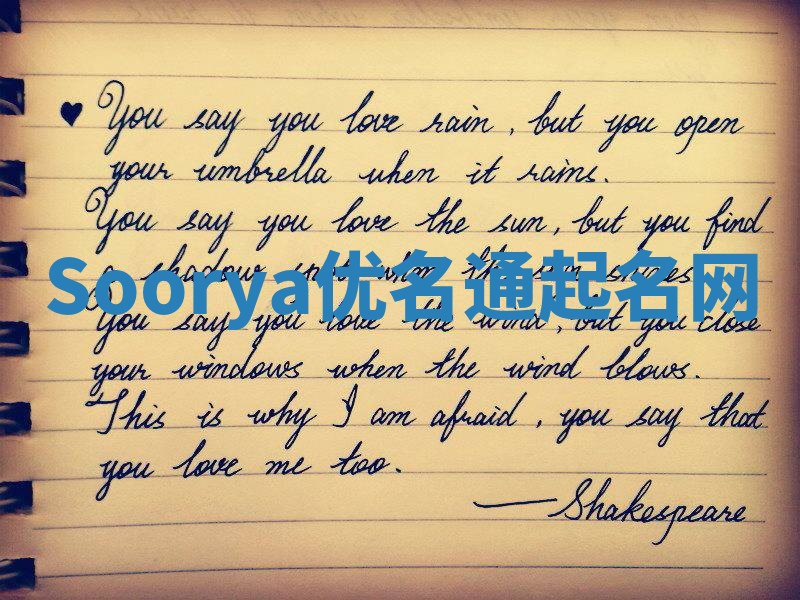 ♥ You say you love rain, but you open
your umbrella when it rains.
You say you love the sun, but you find
a shadow spot when the sun shines.
Soorya优名通起名网
You say you love the wind, but you close
your windows when the wind blows.
This is why I am afraid, you say that
you love me too.
—Shakespeare